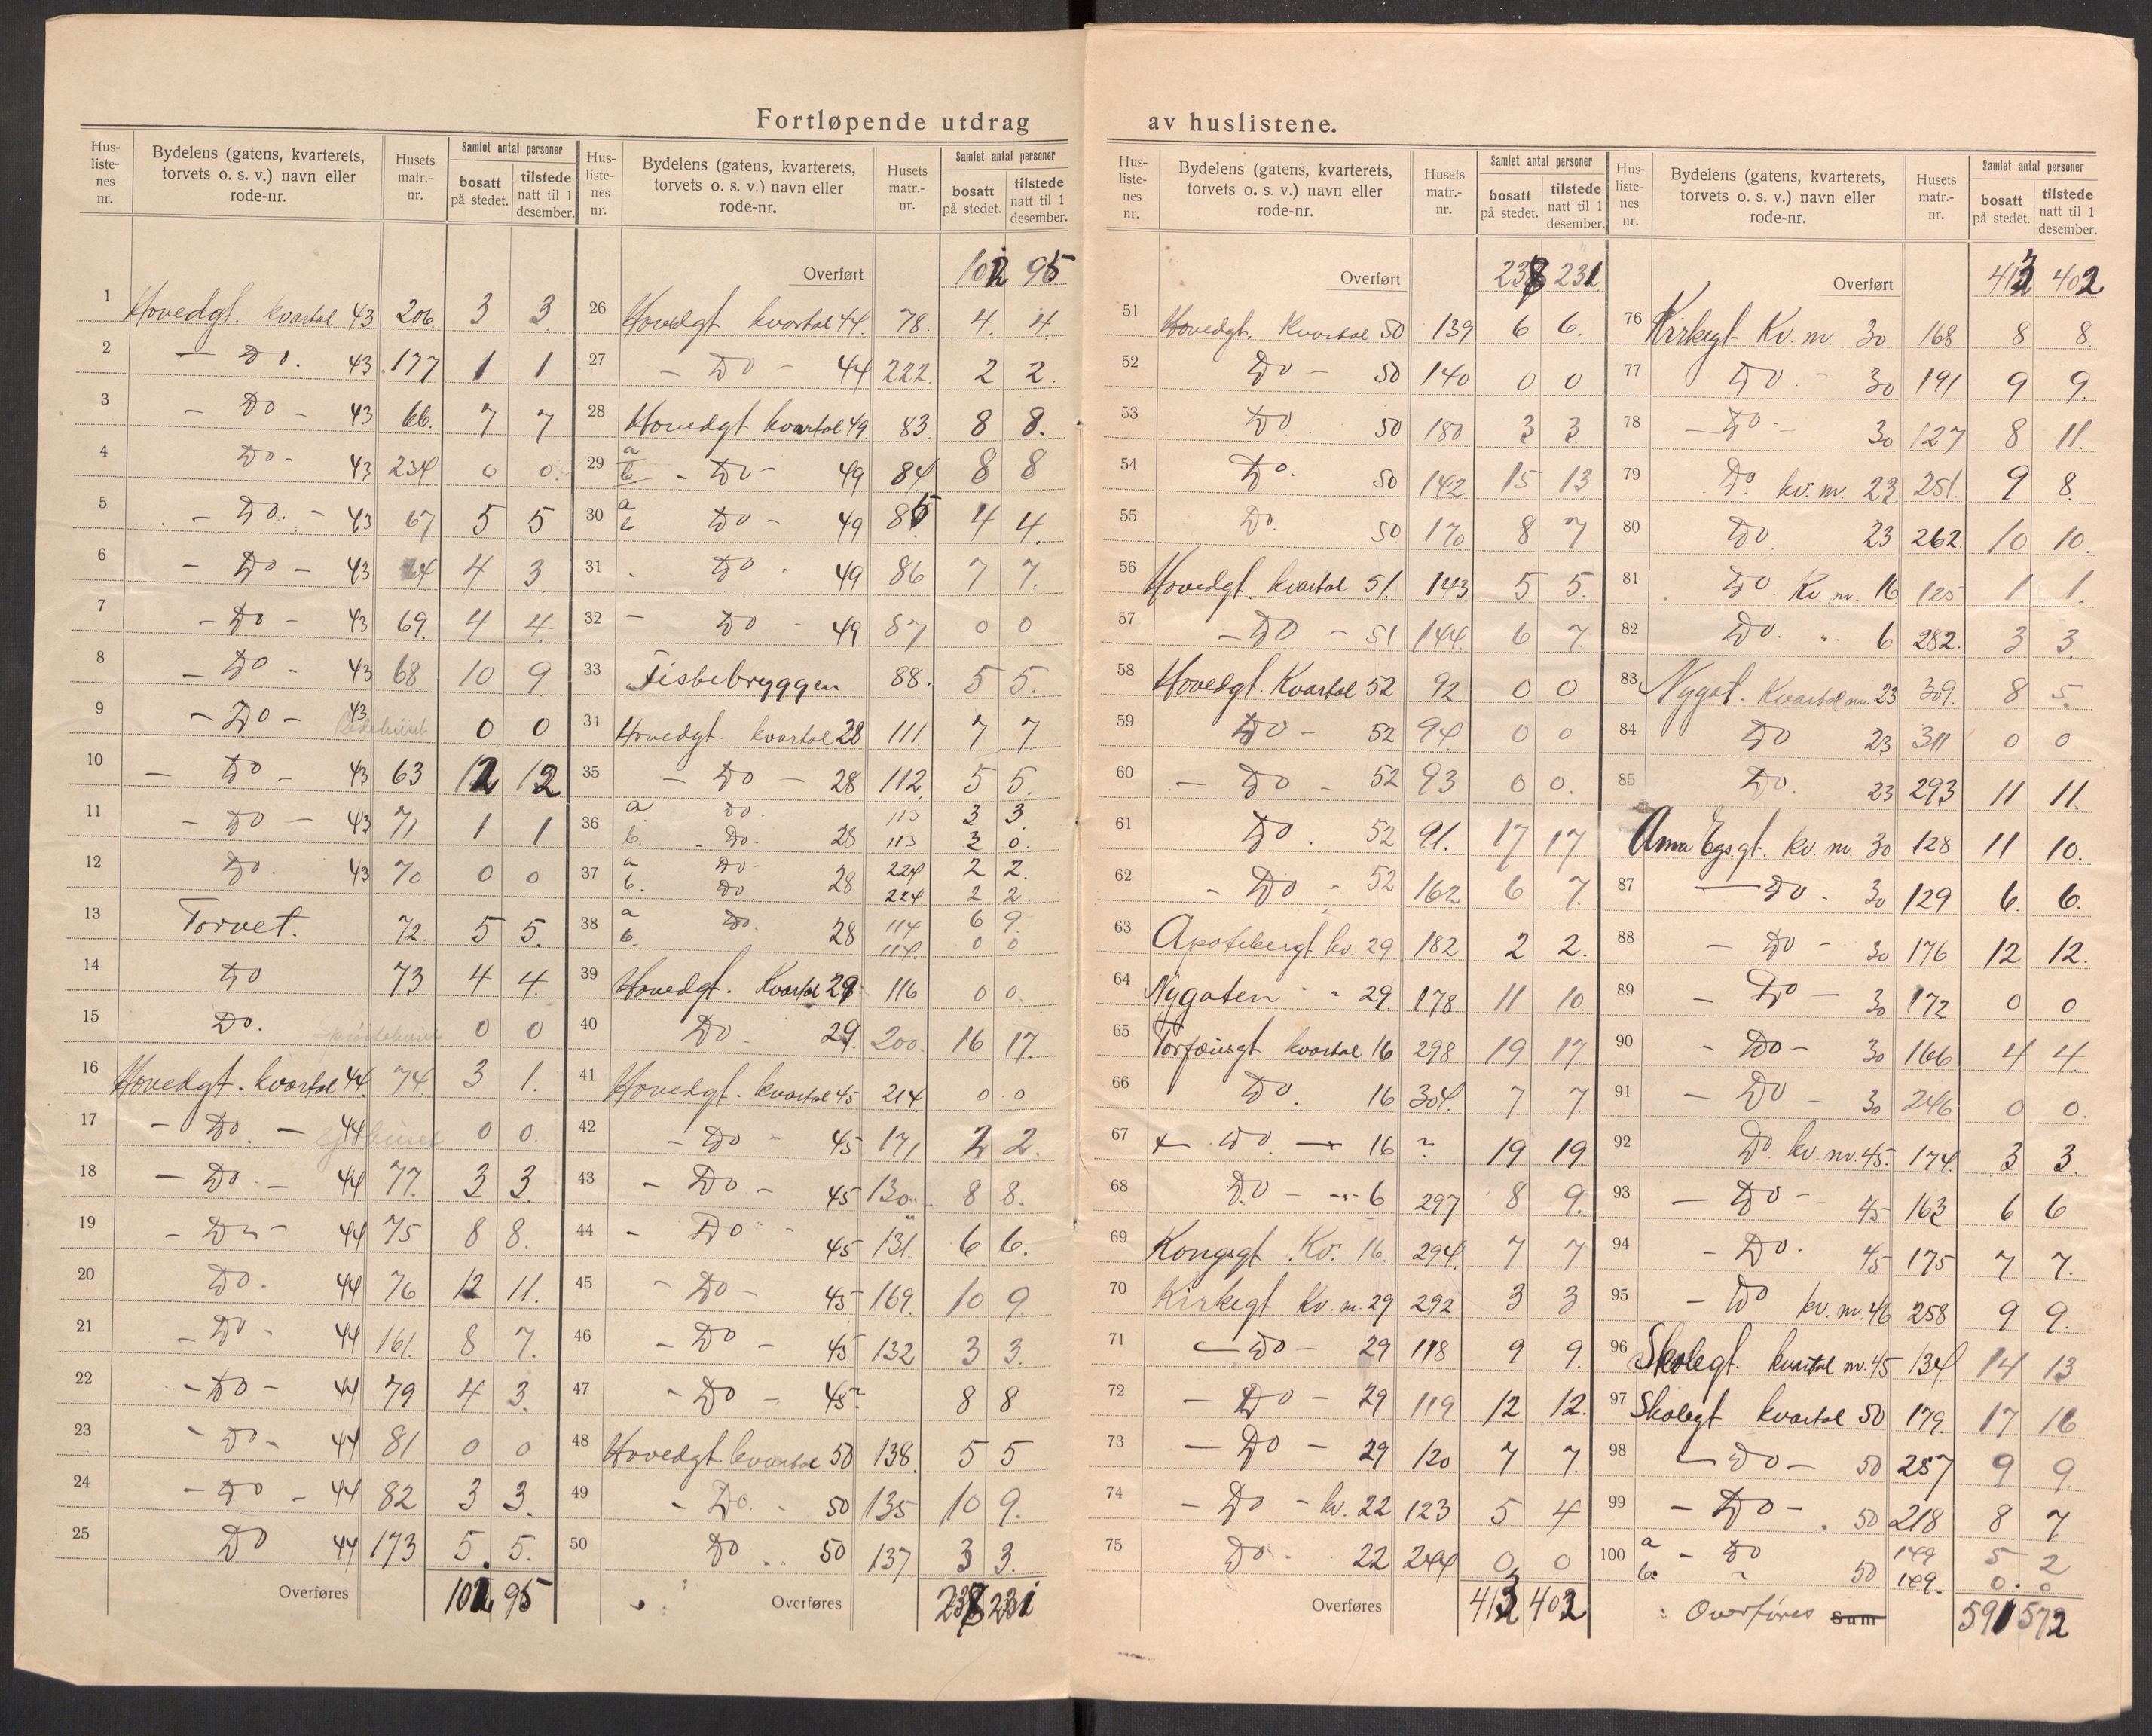 Fortløpende utdrag av huslistene.
Hus-liste-nes nr. | Bydelens (gatens, kvarterets, torvets o. s. v.) navn eller rode-nr. | Husets matr.-nr. | Samlet antal personer | bosatt på stedet. | tilstede natt til 1 desember.
1 Hovedgt. kvartal 43 206. 3 3.
2 — Do. 43 177 1 1
3 — Do — 43 66. 7 7
4 Do - 43 234. 0 0.
5 — Do. — 43 67 5 5
6 — Do — 43 4 3.
7 — Do — 43 69. 4 4.
8 — Do - 43 68 10 9.
9 — Do — 43 Bedehuset 0 0
10 — Do — 43 63 12 12
11 — Do — 43 71 1 1
12 Do. 43 70 0 0
13 Torvet. 72. 5 5.
14 Do 73 4 4.
15 Do. 0 0
16 Hovedgt. kvartal 44. 74. 3 1.
17 — Do. — 44 0 0.
18 — Do. — 44 77. 3 3.
19 — Do - 44 75 8 8.
20 Do. 44 76 12 11.
21 — Do - 44 161. 8 7.
22 - Do - 44 79 4 3.
23 - Do - 44 81 0 0
24 — Do - 44 82 3 3.
25 Do 44 173 5. 5.
Overføres 102 95
Hus-liste-nes nr. | Bydelens (gatens, kvarterets, torvets o. s. v.) navn eller rode-nr. | Husets matr.-nr. | Samlet antal personer | bosatt på stedet. | tilstede natt til 1 desember.
Overført 102 95
26 Hovedgt kvartal 44. 78. 4. 4.
27 — Do — 44 222. 2 2.
28 Hovedgt kvartal 49. 83. 8 8.
29 a b - Do - 49 84 8 8
30 a b Do - 49 85 4 4.
31 Do 49 86 7 7.
32 — Do - 49 87 0 0
33 Fiskebryggen 88. 5 5.
34 Hovedgt. kvartal 28 111 7 7
35 — Do — 28 112. 5 5.
36 a. Do. 113 3 3.
b. - Do. 28 113 3 0.
37 a Do - 224 2 2.
b. Do 28 224. 2 2.
38 a Do. 114 6 9.
b. 28 114. 0 0
39 Hovedgt. Kvartal 29 116 0 0.
40 Do 29. 200. 16 17.
41 Hovedgt. kvartal 45 214. 0 0
42 — Do - 45 171 2 2.
43 - Do - 45 130. 8 8.
44 - Do - 45 131. 6 6.
45 - Do - 45 169. 10 9.
46 — Do — 45 132 3 3.
47 - Do - 45 8 8
48 Hovedgt kvartal 50 138. 5 5
49 - Do. - 50 135 10 9.
50 Do 50 137 3 3.
Overføres 238 231
Hus-liste-nes nr. | Bydelens (gatens, kvarterets, torvets o. s. v.) navn eller rode-nr. | Husets matr.-nr. | Samlet antal personer | bosatt på stedet. | tilstede natt til 1 desember.
Overført 238 231.
51 Hovedgt. Kvartal 50 139 6 6.
52 Do — 50 140 0 0
53 Do 50 180 3 3.
54 Do. 50 142 15 13.
55 Do. 50 170 8 7
56 Hovedgt. kvartal 51. 143 5 5.
57 — Do — 51 144. 6 7.
58 Hovedgt. Kvartal 52 92 0 0
59 Do - 52 94. 0 0
60 — Do - 52 93 0 0.
61 Do. 52 91. 17 17
62 - Do - 52 162 6 7.
63 Apotekergt kv. 29 182 2 2.
64 Nygaten " " 29. 178 11 10.
65 Torfæusgt kvartal 16 298 19 17.
66 Do. 16 304. 7 7
67 Do. — 16 19 19.
68 Do - 6 297 8 9.
69 Kongsgt. Kv. 16. 294. 7 7
70 Kirkegt Kv. nr. 29 292 3 3
71 — Do — 29 118 9 9.
72 — Do — 29 119 12 12.
73 — Do — 29 120 7 7.
74 — Do - kv. 22 123 5 4
75 Do 22 244 0 0
Overføres 413 402
Hus-liste-nes nr. | Bydelens (gatens, kvarterets, torvets o. s. v.) navn eller rode-nr. | Husets matr.-nr. | Samlet antal personer | bosatt på stedet. | tilstede natt til 1 desember.
Overført 413 402
76 Kirkegt Kv. nr. 30 168 8 8.
77 Do. — 30 191 9 9.
78 — Do. — 30 127 8 11.
79 Do kv. nr. 23 251. 9 8.
80 Do. 23 262. 10 10.
81 Do. Kv. nr. 16 125 1 1.
82 Do. " 6 282. 3 3.
83 Nygat. Kvartal nr. 23 309. 8 5.
84 Do 23 311 0 0
85 Do. 23 293 11 11.
Anna Egsgt. kv. nr. 30 128 11 10.
87 — Do. 30 129 6. 6.
88 — Do - 30 176 12 12.
89 - Do — 30 172 0 0
90 - Do - 30 166 4 4.
91 — Do - 30 246 0 0.
92 Do. kv. nr. 45. 174. 3 3.
93 — Do - 45 163 6 6
94 - Do. 45 175 7 7.
95 — Do kv. nr. 46 258 9 9.
96 Skolegt. kvartal nr. 45 134 14 13
97 Skolegt kvartal 50 179. 17 16
98 — Do — 50 257 9 9.
99 — Do - 50 218 8 7
100 a - Do 149 5 2
b. " 50 149. 0. 0
Overføres Sum 591 572